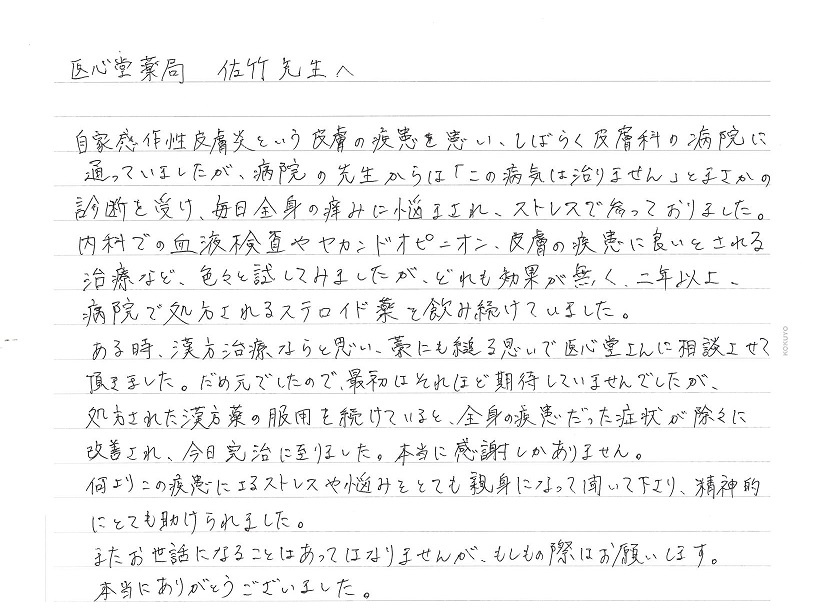 医心堂薬局 佐竹先生へ
自家感作性皮膚炎という皮膚の疾患を患い、しばらく皮膚科の病院に
通っていましたが、病院の先生からは「この病気は治りません」とまさかの
診断を受け、毎日全身の痒みに悩まされ、ストレスで参っておりました。
内科での血液検査やセカンドオピニオン、皮膚の疾患に良いとされる
治療など、色々と試してみましたが、どれも効果が無く、二年以上、
病院で処方されるステロイド薬を飲み続けていました。
ある時、漢方治療ならと思い、藁にも縋る思いで医心堂さんに相談させて
頂きました。だめ元でしたので、最初はそれほど期待していませんでしたが、
処方された漢方薬の服用を続けていると、全身の疾患だった症状が除々に
改善され、今日完治に至りました。本当に感謝しかありません。
何よりこの疾患によるストレスや悩みをとても親身になって聞いて下さり、精神的
にとても助けられました。
またお世話になることはあってはなりませんが、もしもの際はお願いします。
本当にありがとうございました。
KOKUYO